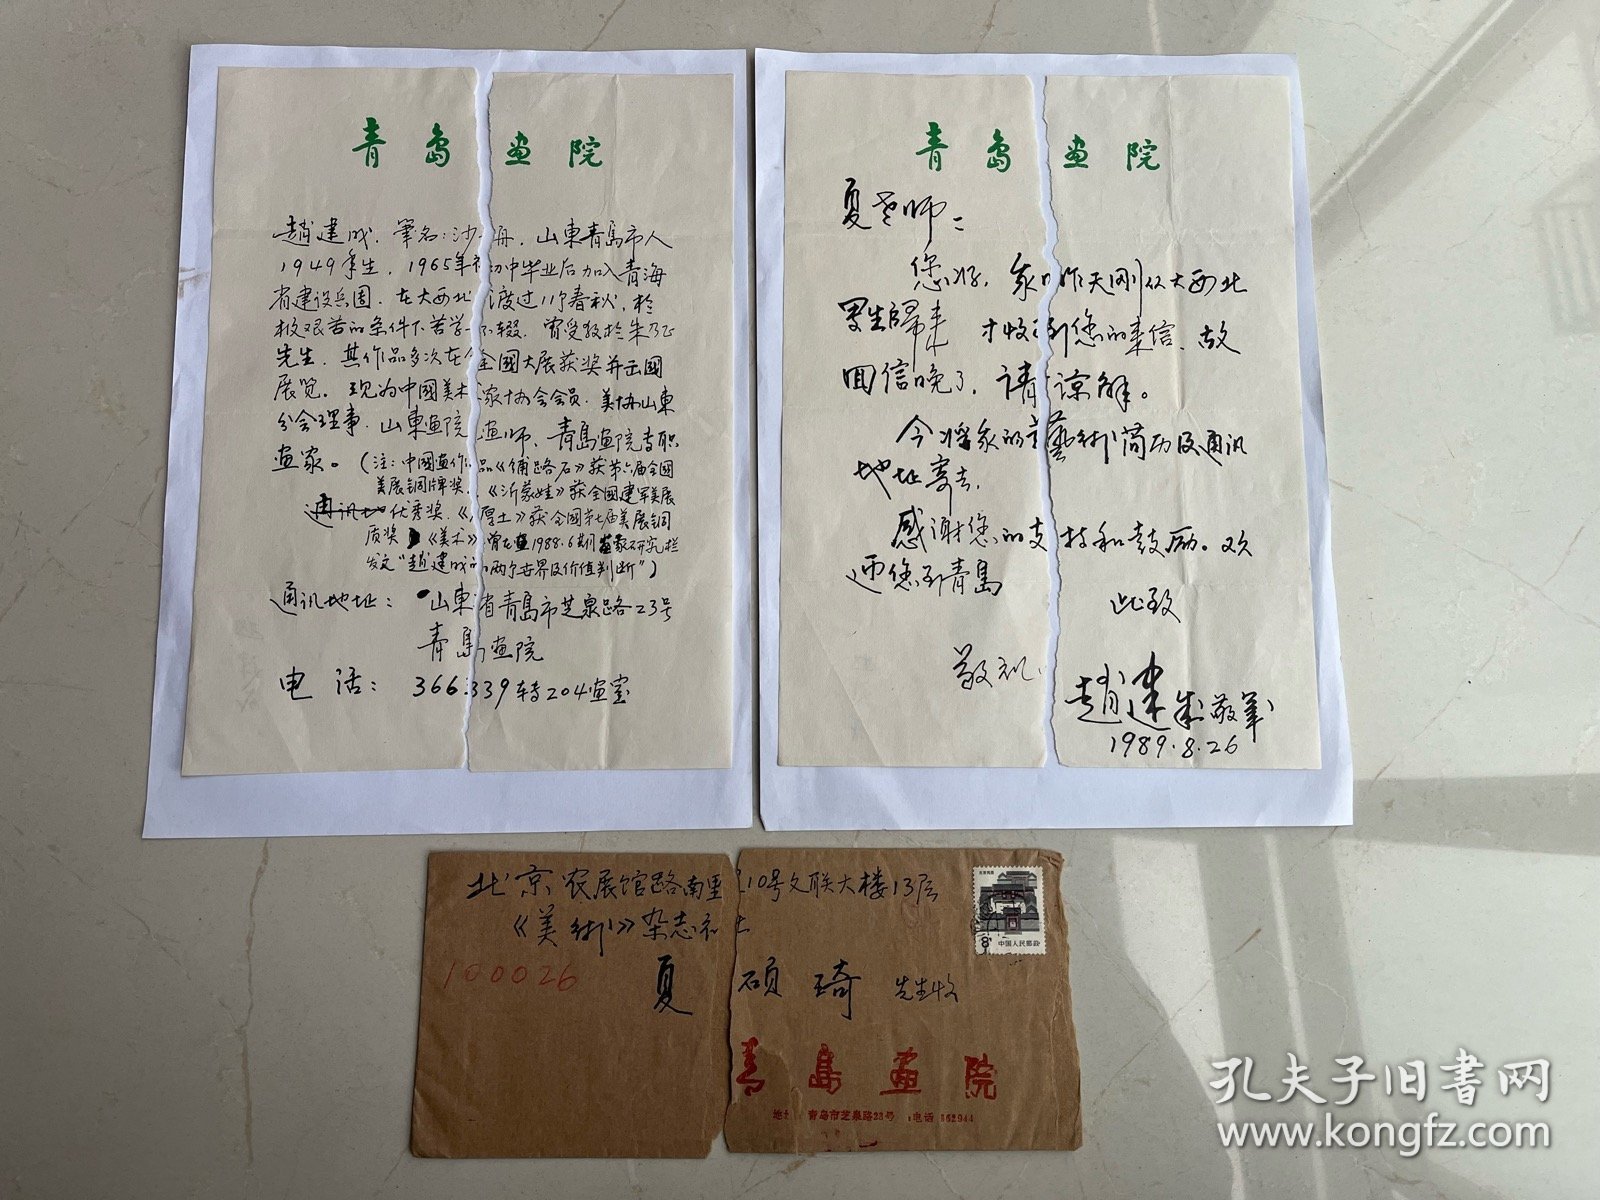 青岛画院
趙建成，筆名：沙 舟，山東青島市人
1949年生，1965年初中毕业后加入青海
省建设兵团，在大西北 渡过11个春秋，於
极艰苦的条件下苦学不辍，曾受教於朱乃正
先生，其作品多次在 全國大展获奖并出國
展览。现为中國美术家协会会员，美协山東
分会理事，山東画院画师，青島画院专职
画家。（注：中國画作品《铺路石》获第六届全國
美展铜牌奖，《沂蒙娃》获全國建军美展
优秀奖，《厚土》获全国第七届美展铜
质奖 《美术》曾在 1988.6期 画家研究栏
发文“趙建成的两个世界及价值判断”）
通讯地址：山東省青島市芝泉路23号
青島画院
电 话：366339转204画室
青岛画院
夏老师：
您好，我昨天刚从大西北
写生歸来 才收到您的来信，故
回信晚了，请谅解。
今将我的 藝術简历及通讯
地址寄去，
感谢您的支持和鼓励。欢
迎您到青島
此致
敬礼
趙建成敬筆
1989.8.26
北京农展馆路南里10号文联大楼13层
《美術》杂志社
100026
夏硕琦 先生收
8
中国人民邮政
青岛画院
地 青岛市芝泉路23号 电话 862944
孔夫子旧书网
www.kongfz.com